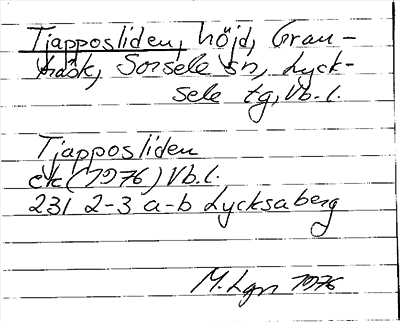 Tjapposliden, höjd, Gran-
träsk, Sorsele sn, Lyck-
sele tg, Vb.l.
Tjapposliden
ek (1976) Vb.l.
231 2-3 a-b Lycksaberg
M. Lgn 1976